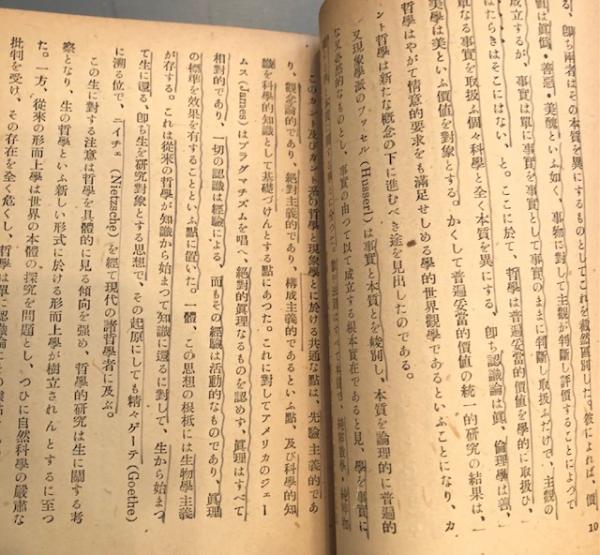 る、卽ち兩者はその本質を異にするものとしてこれを截然區別した。彼によれば、價
は眞僞・善惡・美醜といふ如く、事物に對して主觀が判斷し評價することによつて
成立するが、事實は單に事實を事實として事實のままに判斷し取扱ふだけで、主觀の
はたらきはそこにはない、と。ここに於て、哲學は普遍妥當的價値を學的に取扱ひ、
單なる事實を取扱ふ個々科學と全く本質を異にする。卽ち認識論は眞、倫理學は善、
美學は美といふ價値を對象とする。かくして普遍妥當的價値の統一的硏究の結果は、
哲學はやがて情意的要求をも滿足せしめる學的世界觀學であるといふことになり、カ
ント哲學は新たな概念の下に進むべき途を見出したのである。
又現象學派のフッセル(Husserl)は事實と本質とを峻別し、本質を論理的に普遍的
な又必然的なものとし、事實の由つて以て成立する根本實在であると見、學を事實に
このカント及びカント派の哲學と現象學とに於ける共通な點は、先驗主義的であ
り、觀念論的であり、絕對主義的であり、構成主義的であるといふ點、及び科學的知
識を科學的知識として基礎づけんとする點にあつた。これに對してアメリカのジェー
ムス(James)はプラグマチズムを唱へ、絕對的眞理なるものを認めず、眞理はすべて
相對的であり、一切の認識は經驗による、而もその經驗は活動的なものであり、眞理
の標準を效果を有することといふ點に置いた。一體、この思想の根柢には生物學主義
が存する。これは從來の哲學が知識から始まつて知識に還るに對して、生から始まつ
て生に還る、卽ち生を硏究對象とする思想で、その起原にしても精々ゲーテ(Goethe)
に溯る位で、ニイチェ(Nietzsche)を經て現代の諸哲學者に及ぶ。
この生に對する注意は哲學を具體的に見る傾向を强め、哲學的硏究は生に關する考
察となり、生の哲學といふ新しい形式に於ける形而上學が樹立されんとするに至つ
た。一方、從來の形而上學は世界の本體の探究を問題とし、つひに自然科學の嚴肅な
批判を受け、その存在を全く危くし、哲學は單に認識論に
10